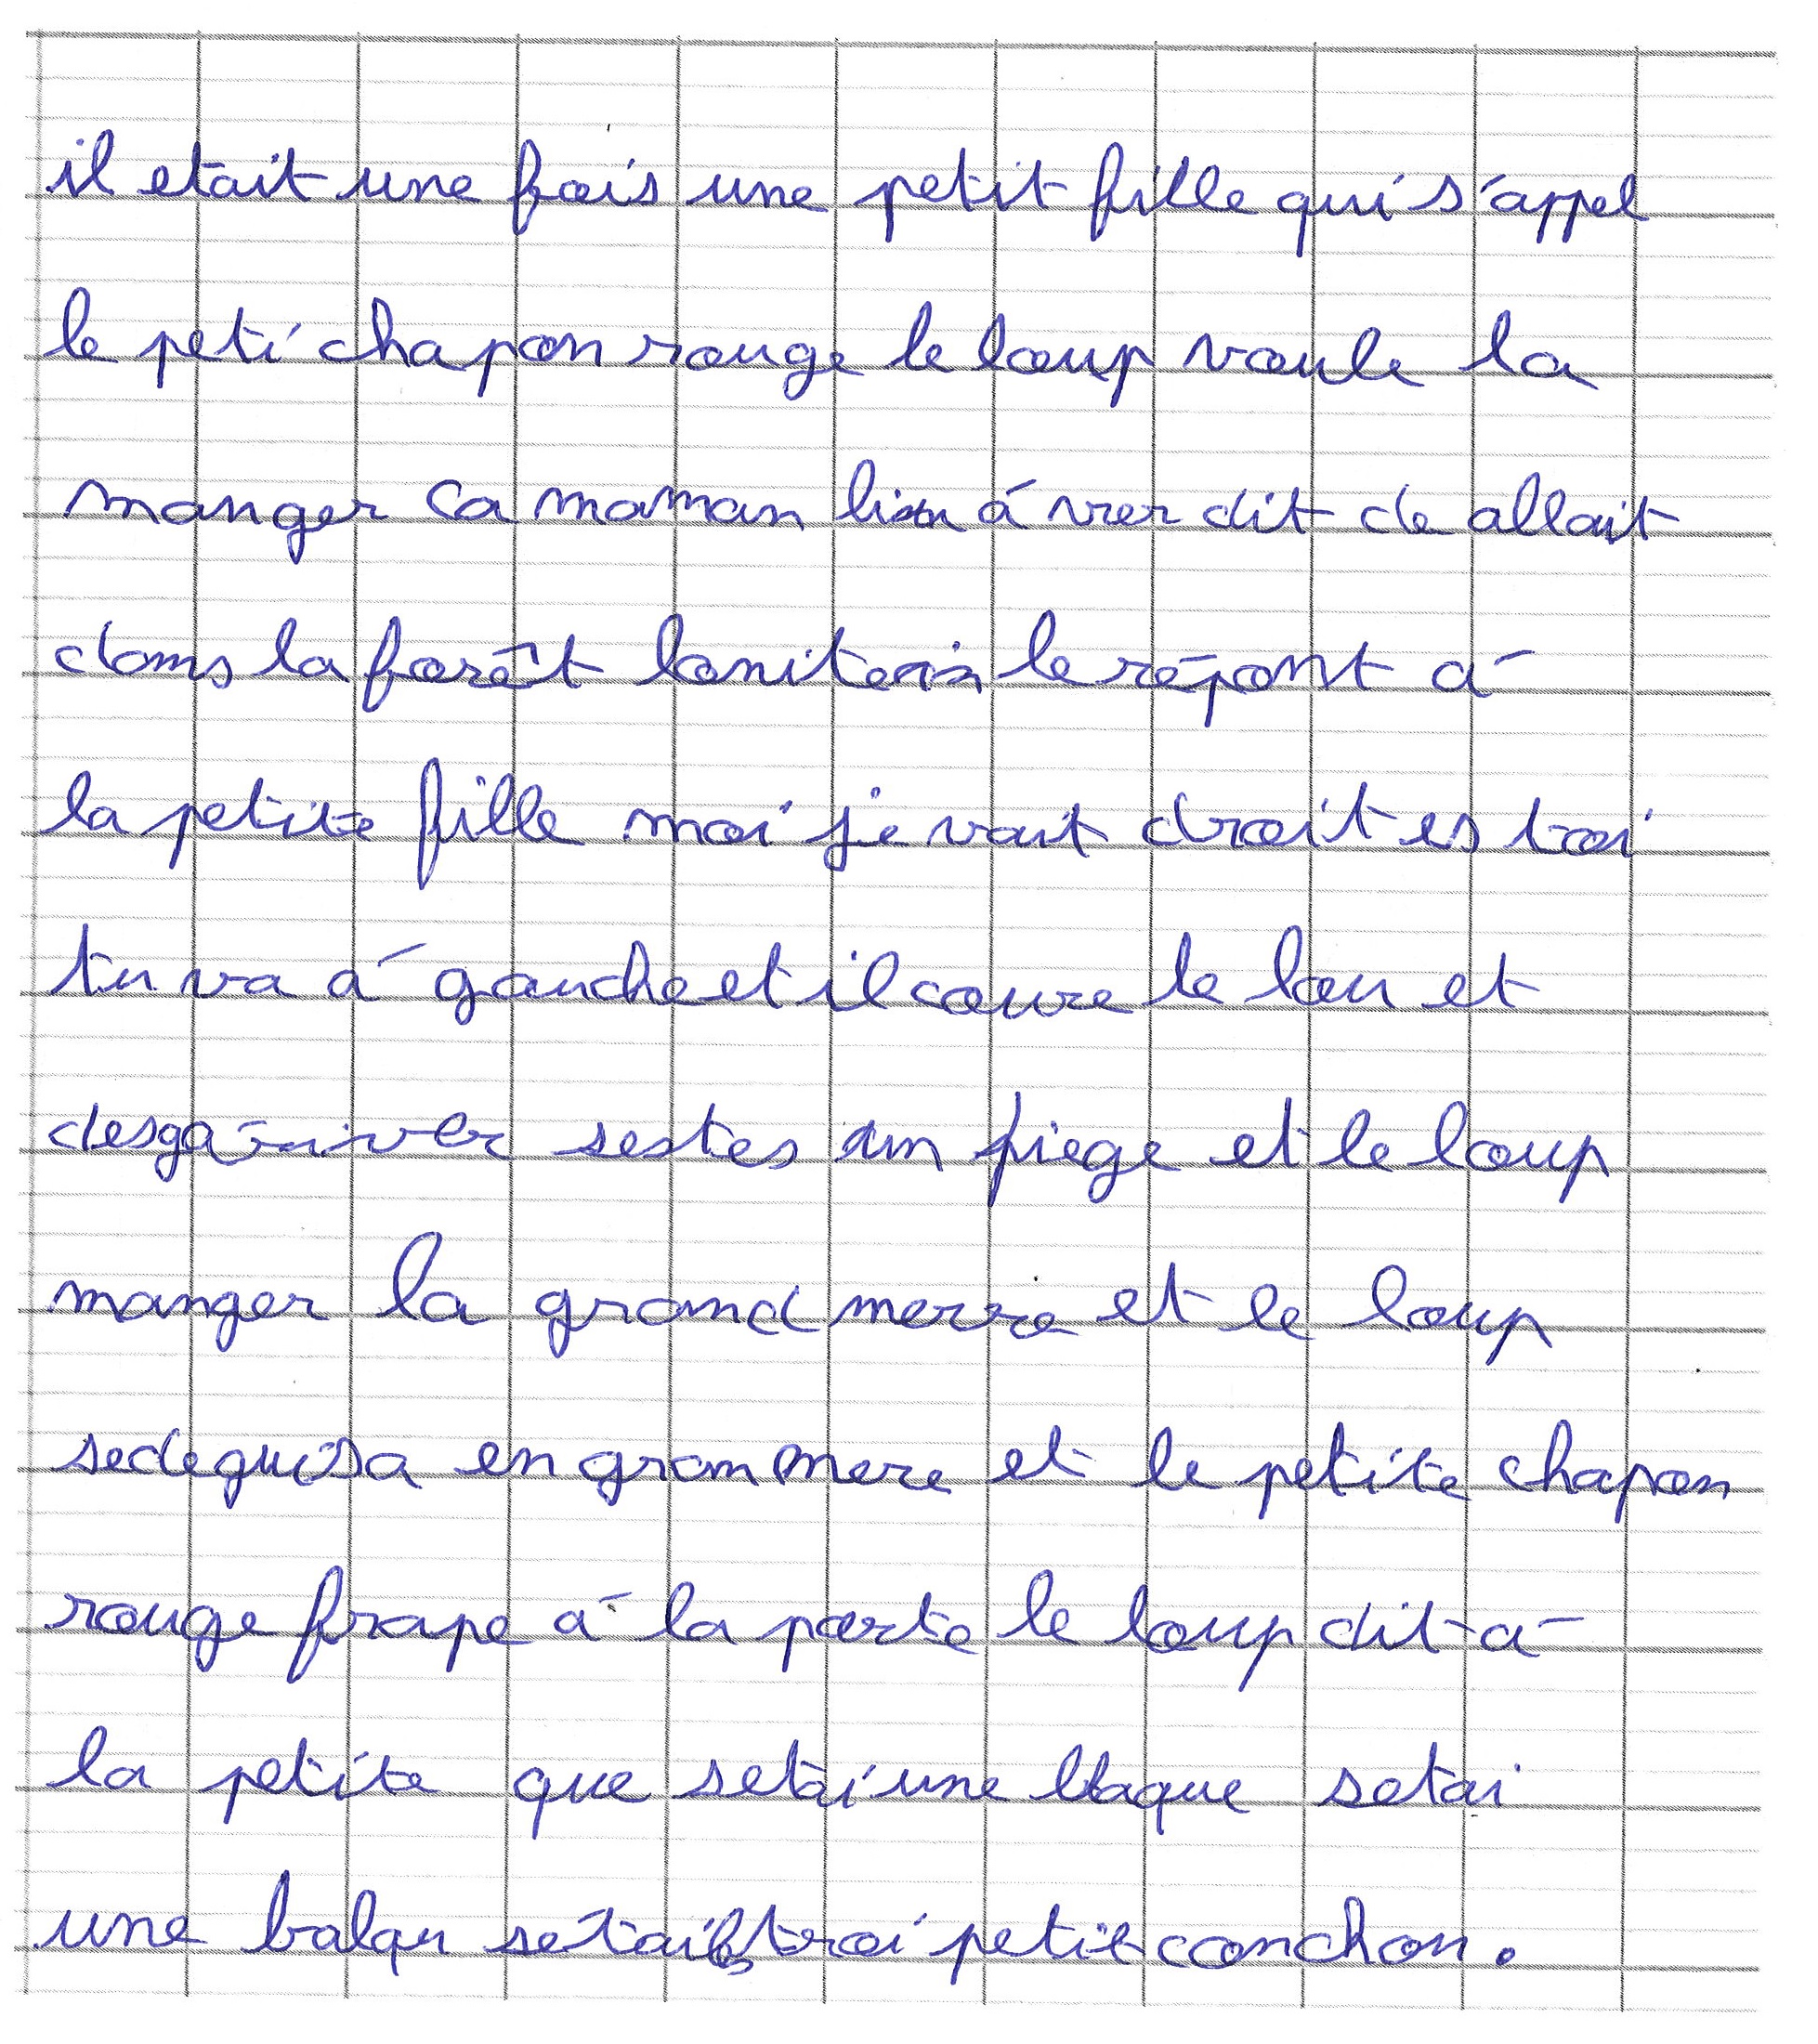 il etait une fois une petit fille qui s'appel
le peti chapon rouge le loup voule la
manger ca maman à vrer dit de allait
dans la forêt le répont à
la petite fille moi je vait droit es toi
tu va à gauche et il coure le lou et
desgariver sestes un piege et le loup
manger la grand merre et le loup
sedeguisa en gran mere et le petite chapon
rouge frape à la porte le loup dit à
la petite que setai une blaque setai
une balqu troi petit conchon.